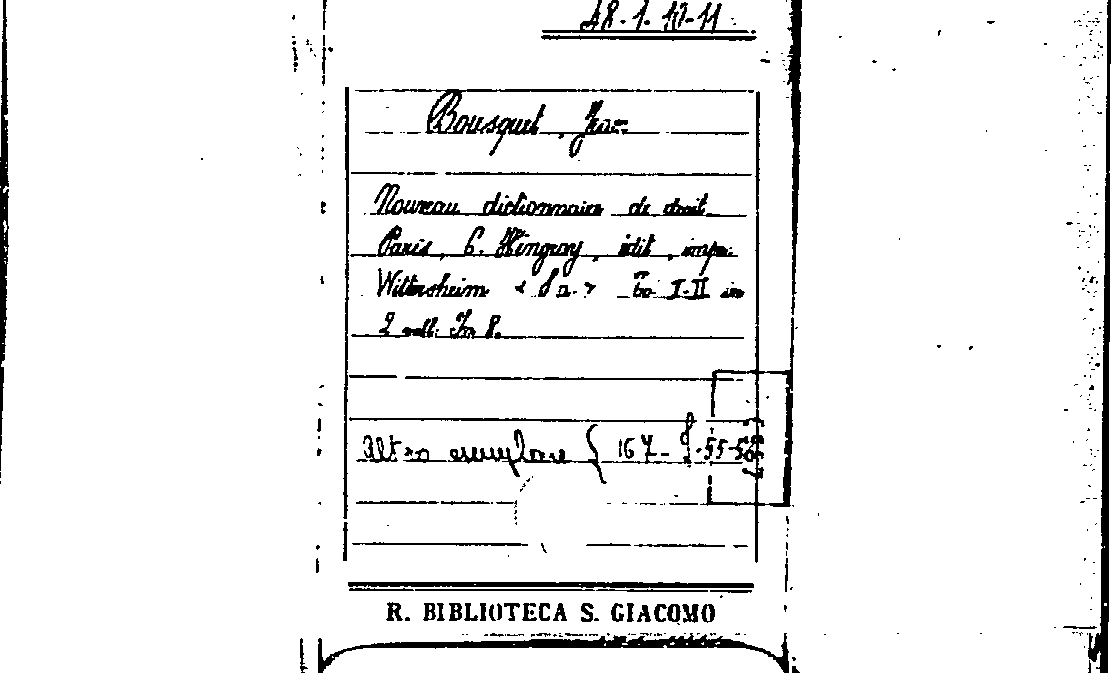 48.1.10-11
Bousquet, Jean
Nouveau dictionnaire de droit
Paris, C. Hingray, édit., imp.
Wittersheim < s. a. > To I-II in
2 voll. In 8.
Altro esemplare { 167- -55-56
R. BIBLIOTECA S. GIACOMO